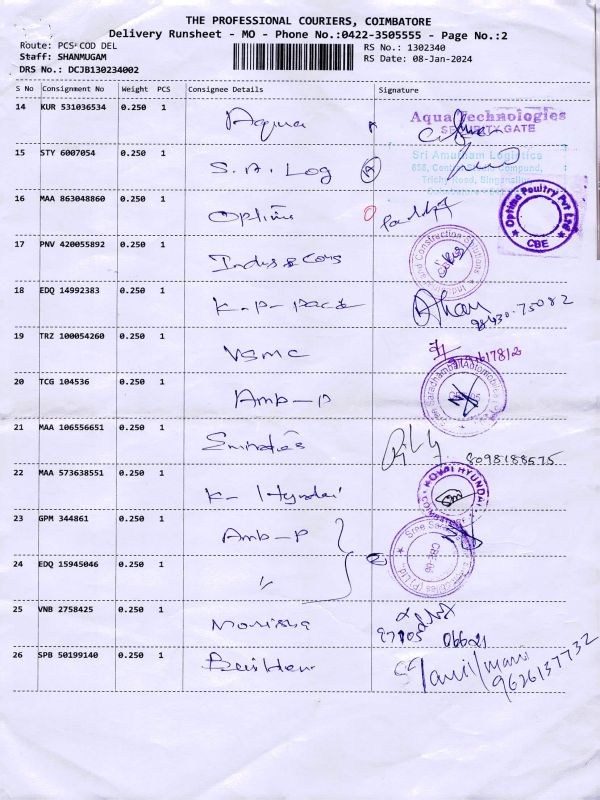 THE PROFESSIONAL COURIERS, COIMBATORE
Delivery Runsheet - MO - Phone No.:0422-3505555 - Page No.:2
Route: PCS COD DEL
RS No.: 1302340
Staff: SHANMUGAM
RS Date: 08-Jan-2024
DRS No.: DCJB130234002
S No Consignment No Weight PCS Consignee Details Signature
14 KUR 531036534 0.250 1 Aqua Aqua Technologies
GATE
15 STY 6007054 0.250 1 S.A. Log Sri Amutham Logistics
Trichy Road,
16 MAA 863048860 0.250 1 Optima Optima Poultry Pvt Ltd
CBE
17 PNV 420055892 0.250 1 Indus & Cons and Construction Solutions
18 EDQ 14992383 0.250 1 K-P-Pack
98430-75082
19 TRZ 100054260 0.250 1 VSMC
20 TCG 104536 0.250 1 Amb-P Sree Saradhambal Automobiles
21 MAA 106556651 0.250 1 Emirates 8098188575
22 MAA 573638551 0.250 1 K-Hyundai KOVAI HYUNDAI
23 GPM 344861 0.250 1 Amb-P Sree
24 EDQ 15945046 0.250 1 〃 (P) Ltd.
25 VNB 2758425 0.250 1 Monisha
26 SPB 50199140 0.250 1 Tamilmani
9626137732